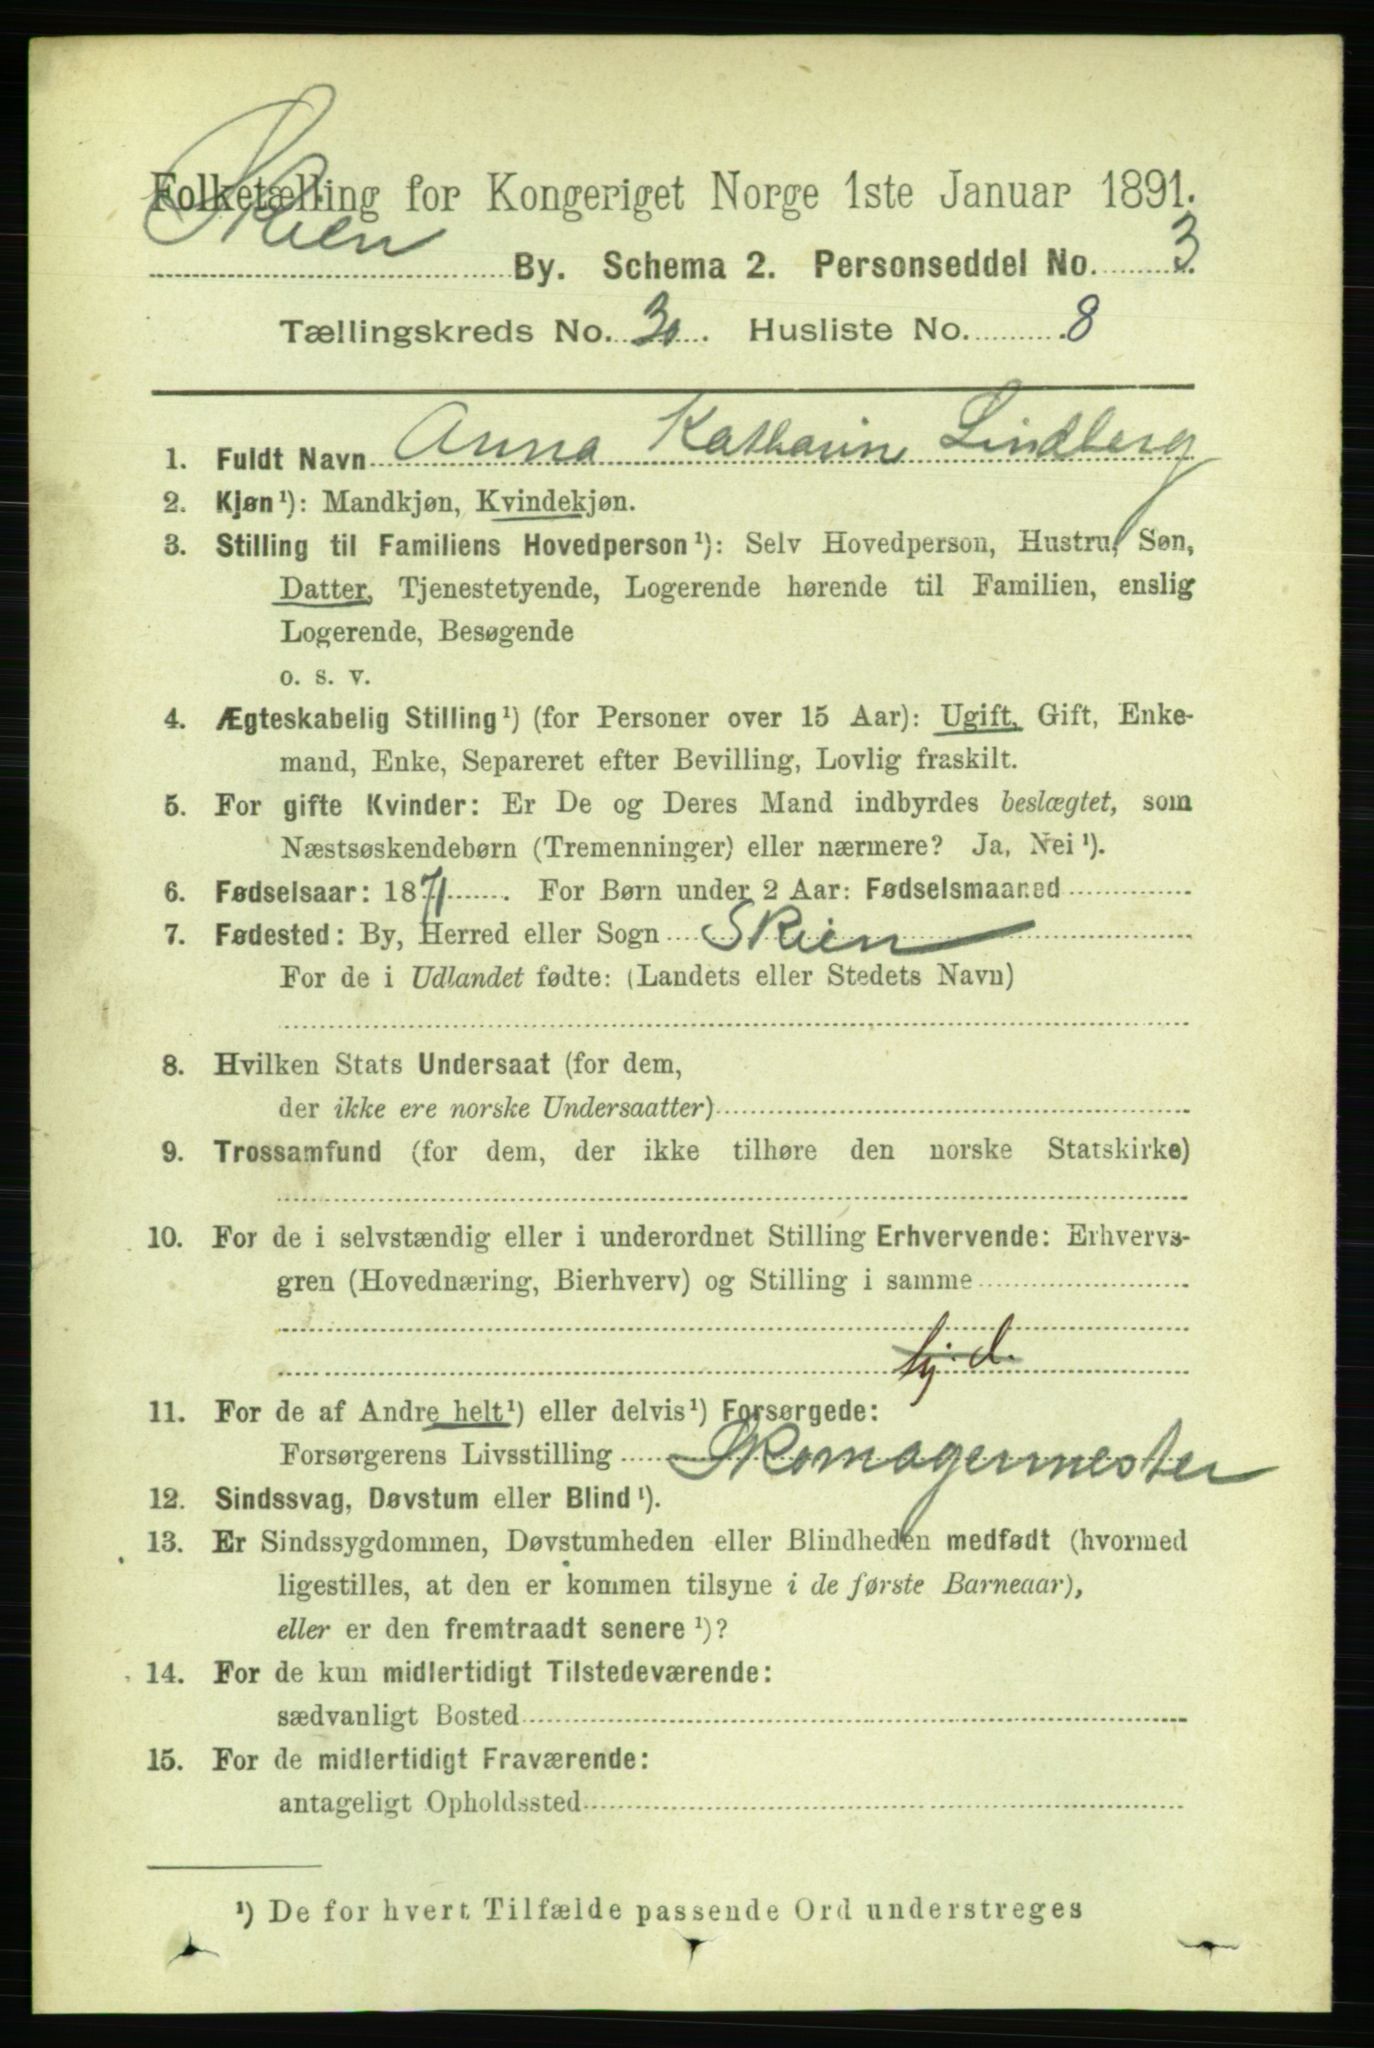 Folketælling for Kongeriget Norge 1ste Januar 1891.
Skien By. Schema 2. Personseddel No. 3.
Tællingskreds No. 30. Husliste No. 8
1. Fuldt Navn Anna Katharine Lindberg
2. Kjøn¹): Mandkjøn, Kvindekjøn.
3. Stilling til Familiens Hovedperson¹): Selv Hovedperson, Hustru, Søn,
Datter, Tjenestetyende, Logerende hørende til Familien, enslig
Logerende, Besøgende
o. s. v.
4. Ægteskabelig Stilling¹) (for Personer over 15 Aar): Ugift, Gift, Enke-
mand, Enke, Separeret efter Bevilling, Lovlig fraskilt.
5. For gifte Kvinder: Er De og Deres Mand indbyrdes beslægtet, som
Næstsøskendebørn (Tremenninger) eller nærmere? Ja, Nei¹).
6. Fødselsaar: 1871. For Børn under 2 Aar: Fødselsmaaned
7. Fødested: By, Herred eller Sogn Skien
For de i Udlandet fødte: (Landets eller Stedets Navn)
8. Hvilken Stats Undersaat (for dem,
der ikke ere norske Undersaatter)
9. Trossamfund (for dem, der ikke tilhøre den norske Statskirke)
10. For de i selvstændig eller i underordnet Stilling Erhvervende: Erhvervs-
gren (Hovednæring, Bierhverv) og Stilling i samme
11. For de af Andre helt¹) eller delvis¹) Forsørgede:
Forsørgerens Livsstilling Skomagermester
12. Sindssvag, Døvstum eller Blind¹).
13. Er Sindssygdommen, Døvstumheden eller Blindheden medfødt (hvormed
ligestilles, at den er kommen tilsyne i de første Barneaar),
eller er den fremtraadt senere¹)?
14. For de kun midlertidigt Tilstedeværende:
sædvanligt Bosted
15. For de midlertidigt Fraværende:
antageligt Opholdssted
¹) De for hvert Tilfælde passende Ord understreges